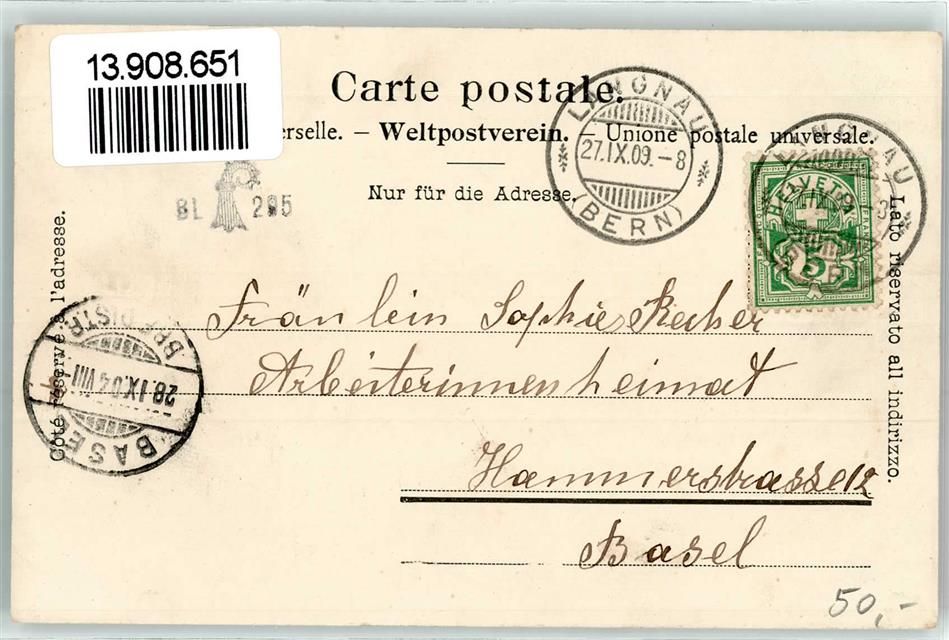 13.908.651
Carte postale.
erselle. – Weltpostverein. – Unione postale universale.
Nur für die Adresse.
LANGNAU
27.IX.09.–8
(BERN)
LANGNAU
HELVETIA
5
BL 295
Côté réservé à l'adresse.
Lato riservato all indirizzo.
BASEL
28.IX.04 VIII
BRF. DISTR.
Fräulein Sophie Recher
Arbeiterinnenheimat
Hammerstrasse 12
Basel
50,-